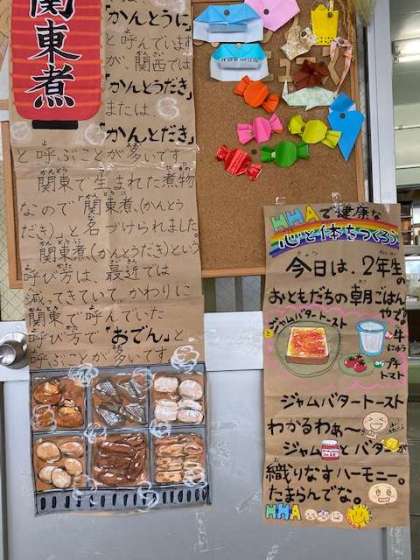 関東煮
「かんとうに」
と呼んでいます
が、関西では
「かんとうだき」
または、
「かんとだき」
と呼ぶことが多いです
関東で生まれた煮物
なので「関東煮、(かんとう
だき)」と名づけられました
関東煮、(かんとうだき)という
呼び方は、最近では
減ってきていて、かわりに
関東で呼んでいた
呼び方で「おでん」と
呼ぶことが多いです
HHAで健康な
心と体をつくろう
今日は、2年生の
おともだちの朝ごはん
やで
ジャムバタートースト
牛にゅう
プチトマト
ジャムバタートースト
わかるわぁ〜
ジャムとバターが
織りなすハーモニー。
たまらんでな。
HHA